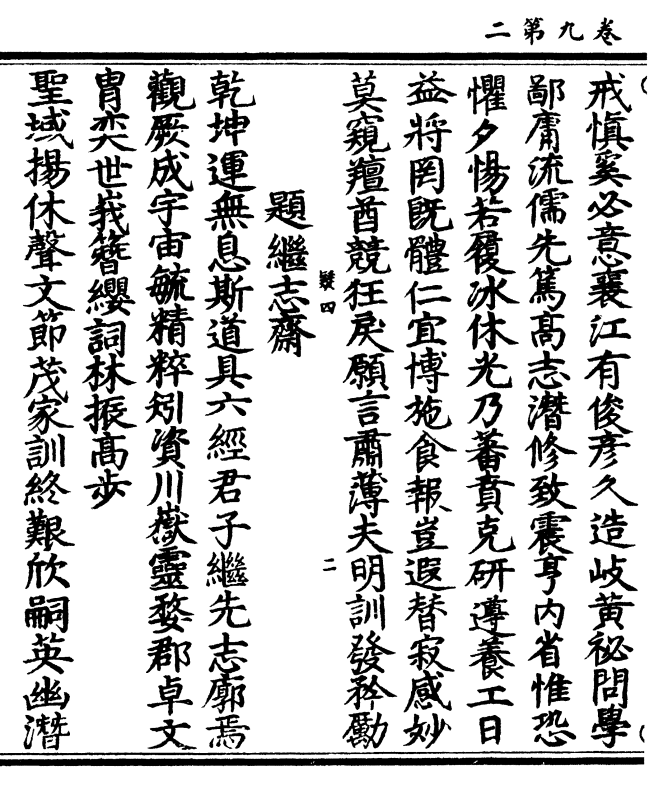 二第九卷
戒慎奚必意襄江有俊彦久造岐黄祕問學
鄙庸流儒先篤高志潛修致震亨内省惟恐
懼夕惕若履冰休光乃蕃賁克研遵養工日
益將罔旣體仁宜博施食報豈遐替寂感妙
莫窺羶酋競狂戾願言肅薄夫明訓發矜勵
題繼志齋
乾坤運無息斯道具六經君子繼先志廓焉
觀厥成宇宙毓精粹矧資川嶽靈婺郡卓文
胄奕世峩簪纓詞林振高步
聖域揚休聲文節茂家訓終艱欣嗣英幽潛
四
二